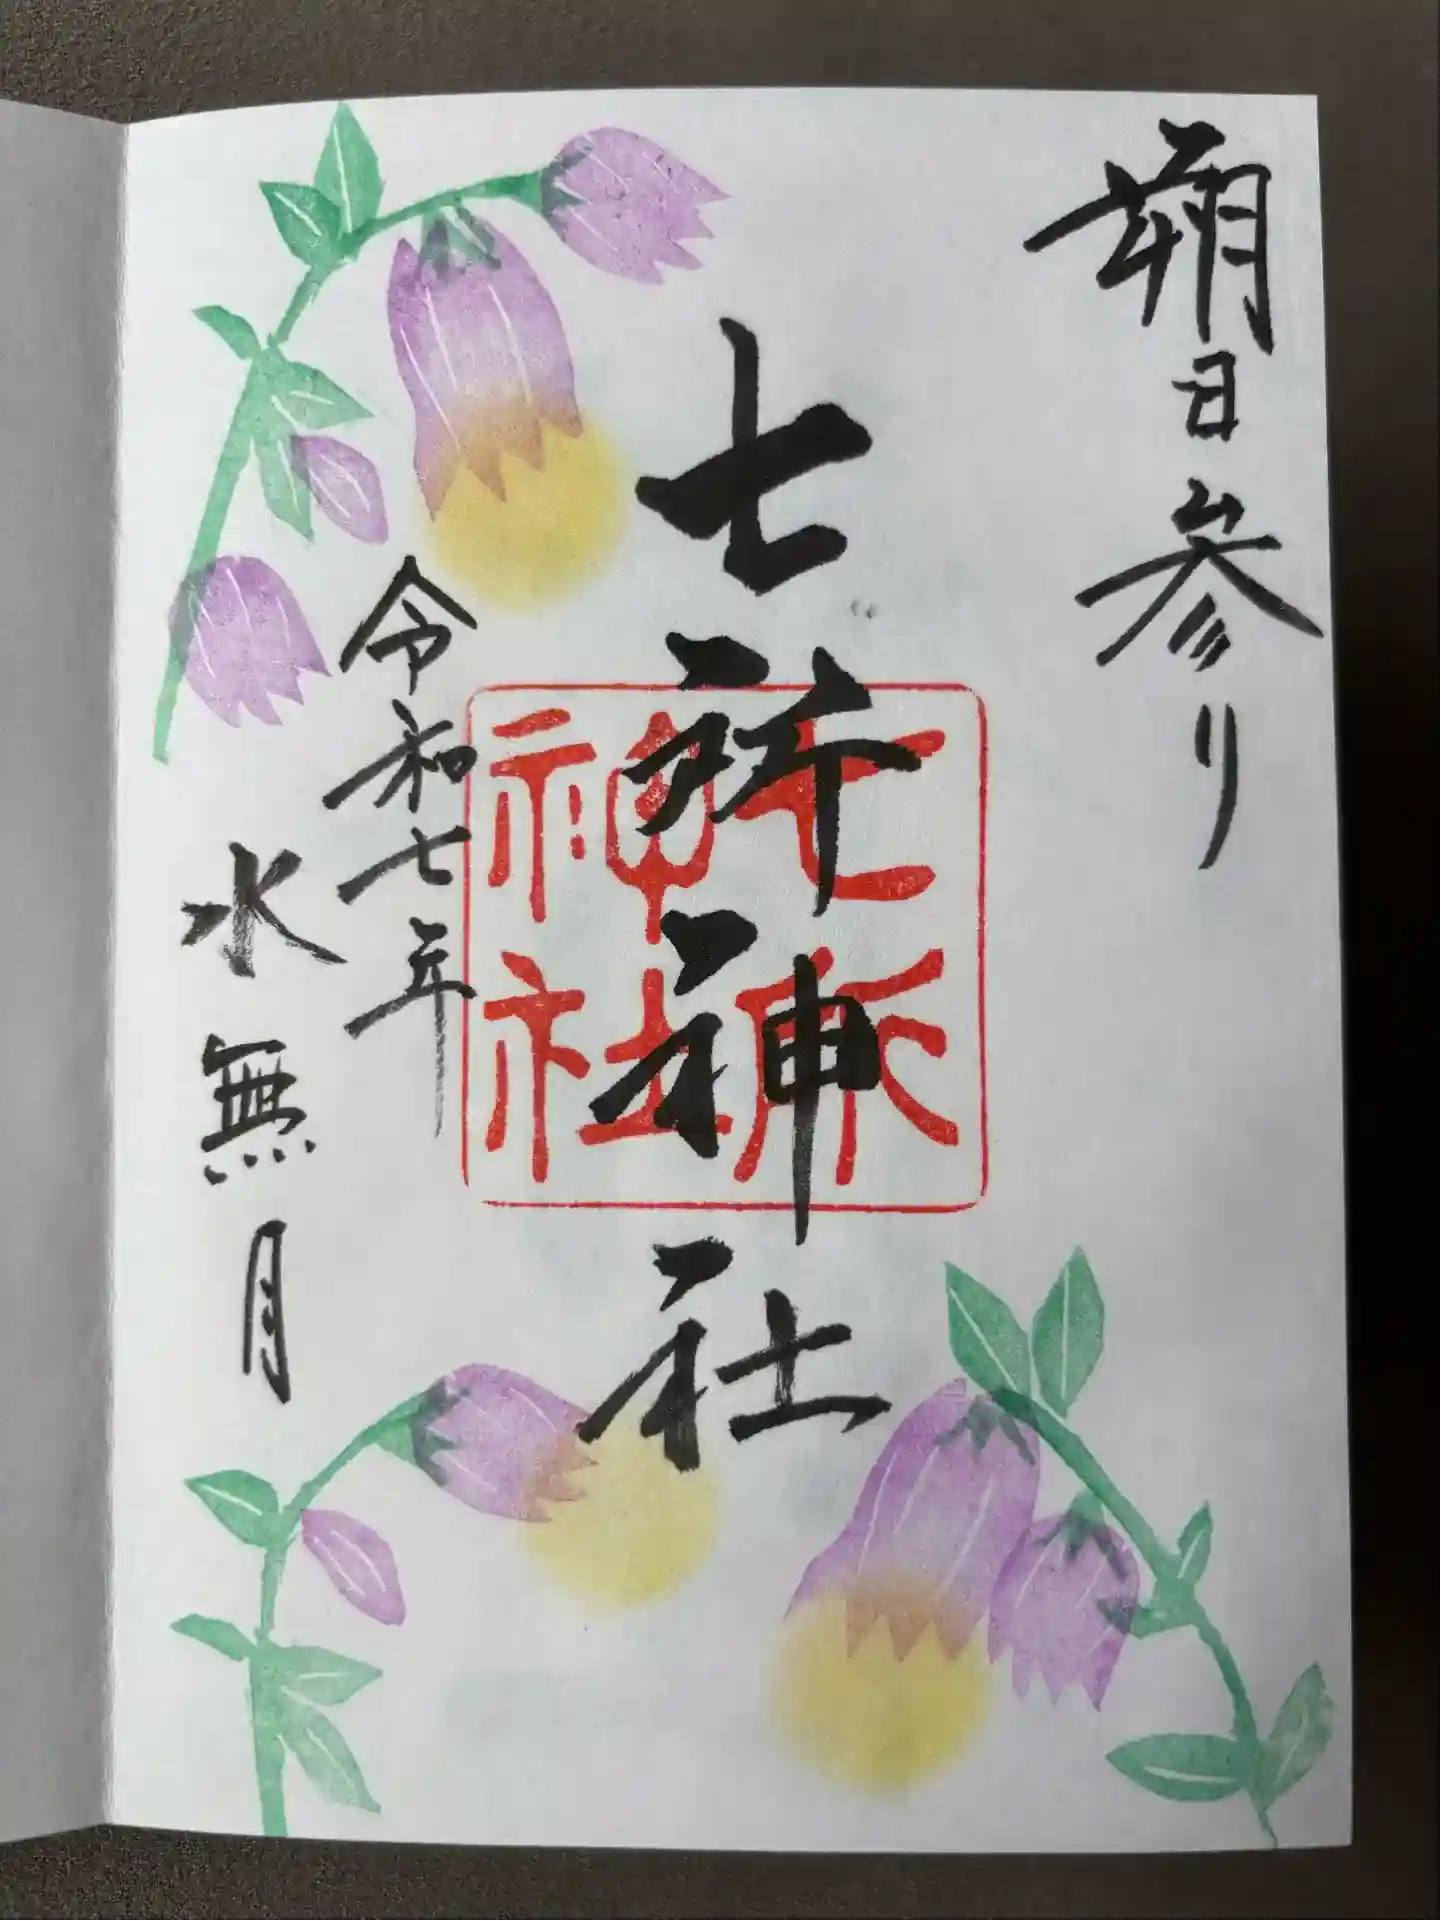 朔日参り
七所神社
七所神社
令和七年
水無月